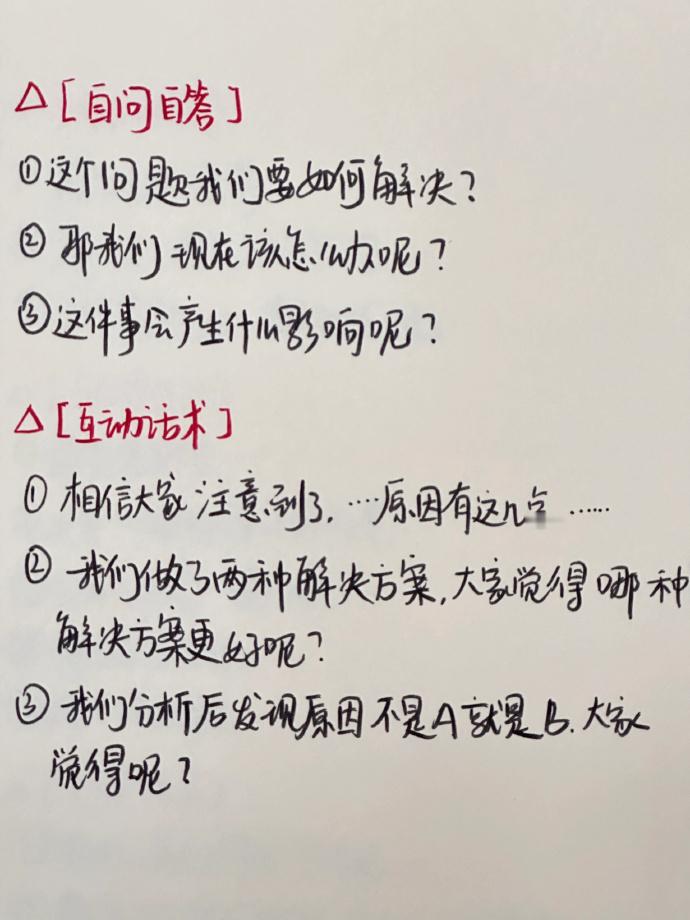 △[自问自答]
①这个问题我们要如何解决？
②那我们现在该怎么办呢？
③这件事会产生什么影响呢？
△[互动话术]
①相信大家注意到了，……原因有这几点……
②我们做了两种解决方案，大家觉得哪种
解决方案更好呢？
③我们分析后发现原因不是A就是B.大家
觉得呢？